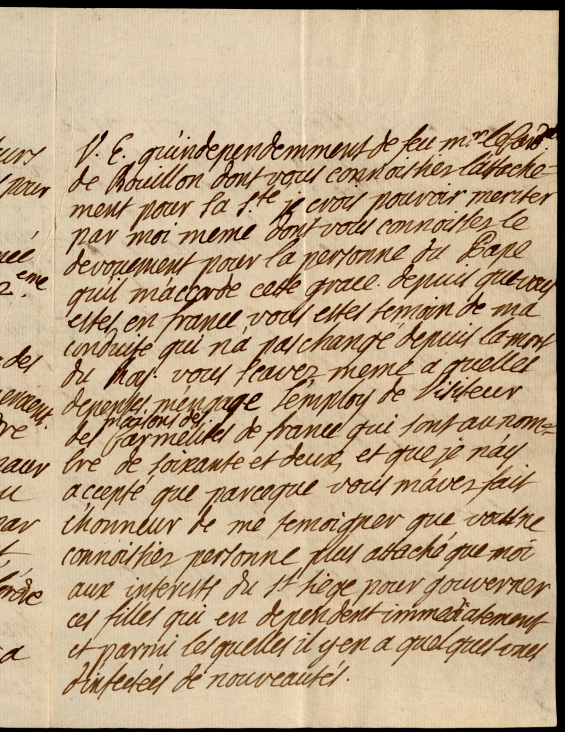 V. E. qu'independemment de feu mr. le Card.al
de Bouillon dont vous connoissiez l'attache-
ment pour sa S.te je crois pouvoir meriter
par moi meme dont vous connoissez le
devouement pour la personne du Pape
qu'il m'accorde cette grace. depuis que vous
estes en france vous estes temoin de ma
conduite qui n'a pas changé depuis la mort
du Roy. vous scavez meme a quelles
depenses m'engage l'employ de Visiteur
maisons des
des Carmelites de france qui sont au nom=
bre de soixante et deux, et que je n'ay
accepté que parceque vous m'avez fait
l'honneur de me temoigner que vous ne
connoissiez personne plus attaché que moi
aux interests du St siège pour gouverner
ces filles qui en dependent immediatement
et parmi lesquelles il y en a quelques unes
d'infectées de nouveautés.